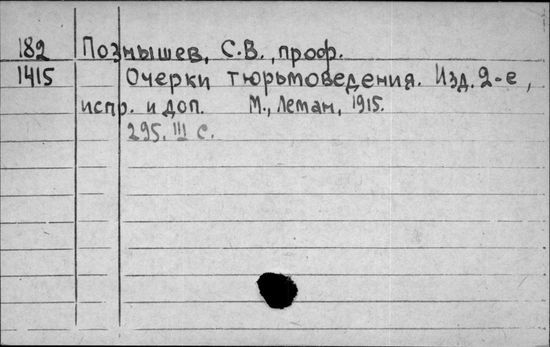 182 Познышев, С.В., проф.
1415 Очерки тюрьмоведения. Изд. 2-е,
испр. и доп. М., Леман, 1915.
295. III с.